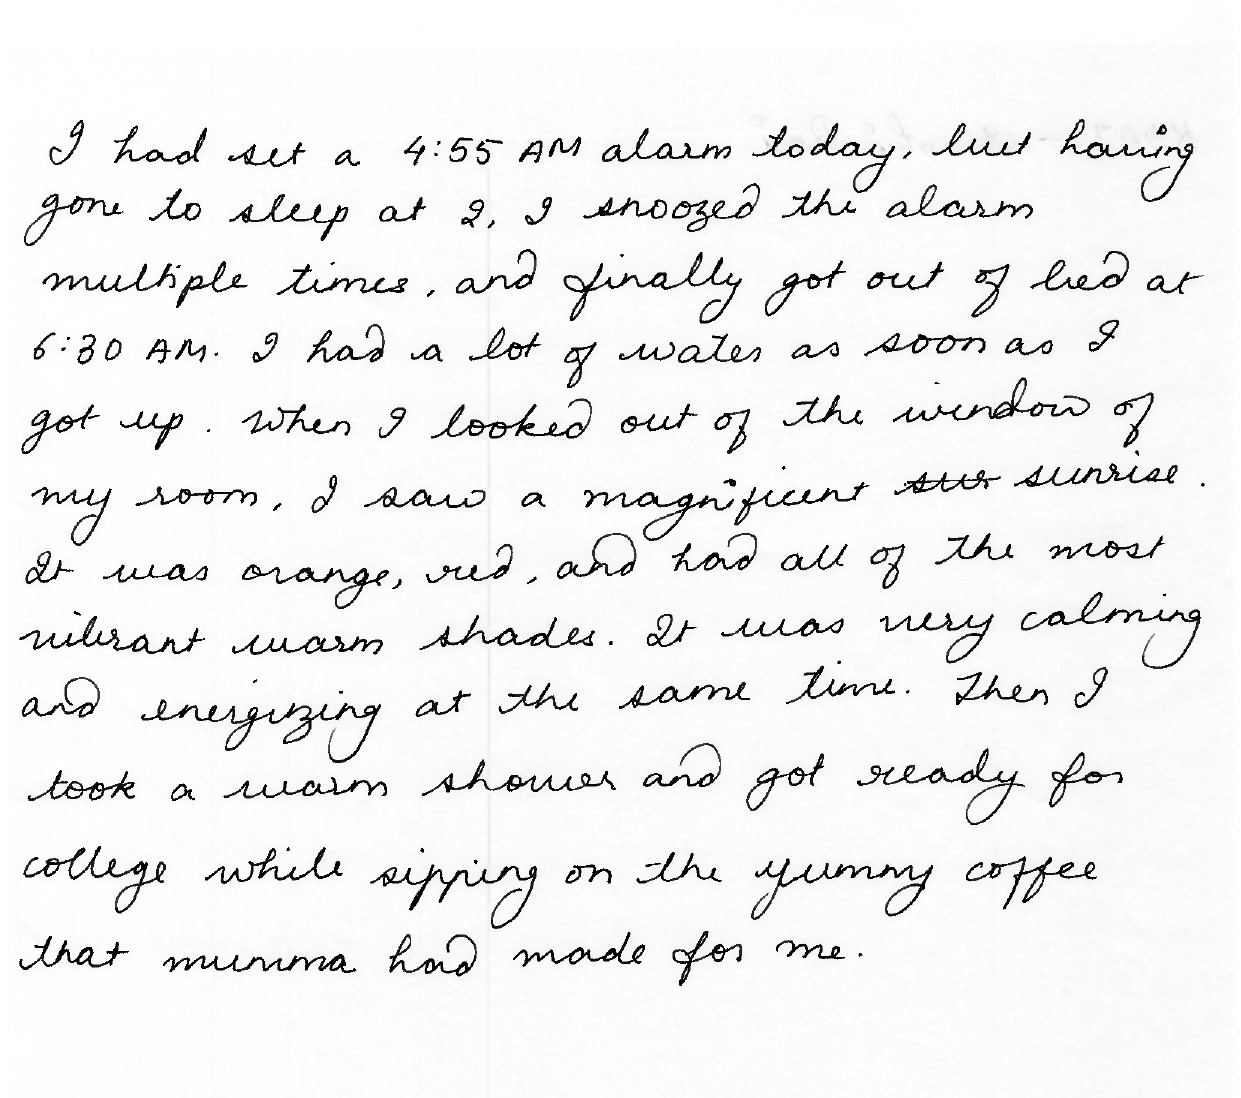 I had set a 4:55 AM alarm today, but having
gone to sleep at 2, I snoozed the alarm
multiple times, and finally got out of bed at
6:30 AM. I had a lot of water as soon as I
got up. When I looked out of the window of
my room, I saw a magnificent sur sunrise.
It was orange, red, and had all of the most
vibrant warm shades. It was very calming
and energizing at the same time. Then I
took a warm shower and got ready for
college while sipping on the yummy coffee
that mumma had made for me.